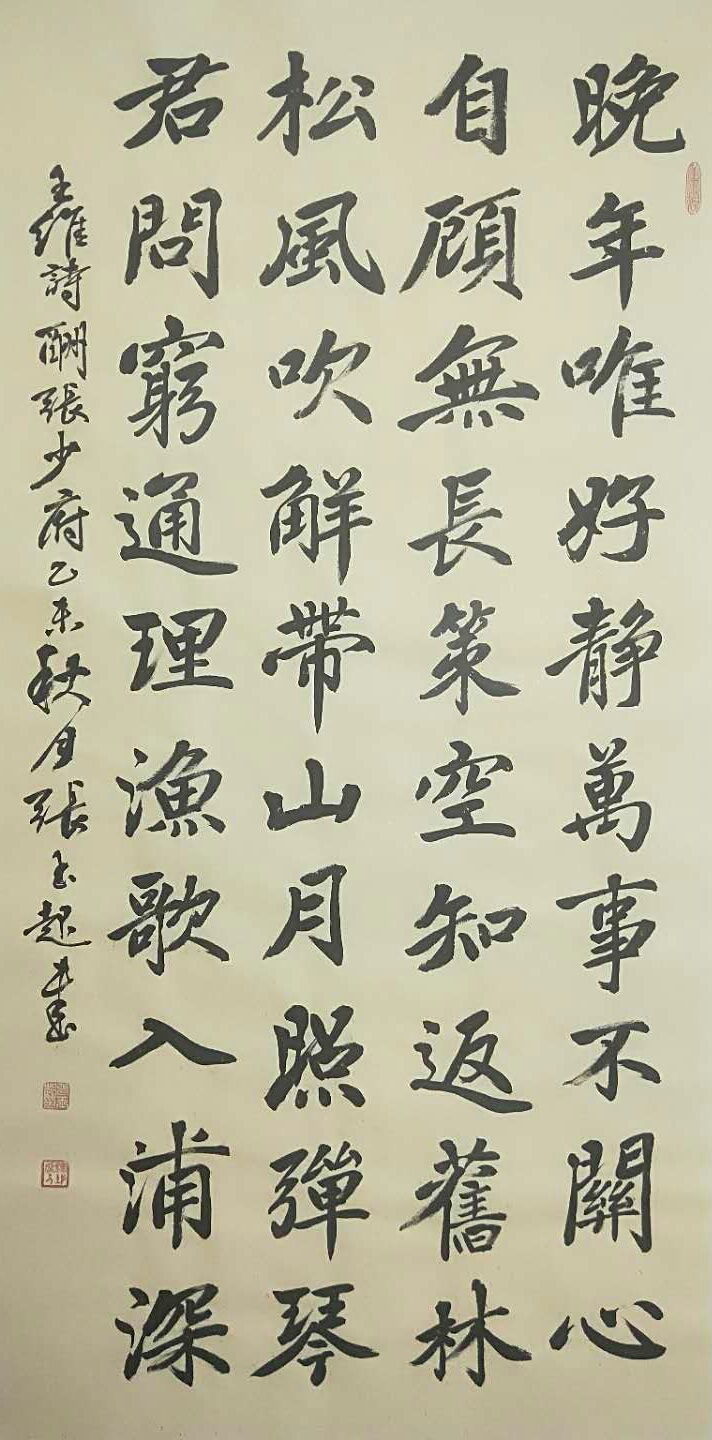 晚年唯好静萬事不關心
自顧無長策空知返舊林
松風吹解帶山月照彈琴
君問窮通理漁歌入浦深
王維詩酬張少府乙未秋月張玉起書